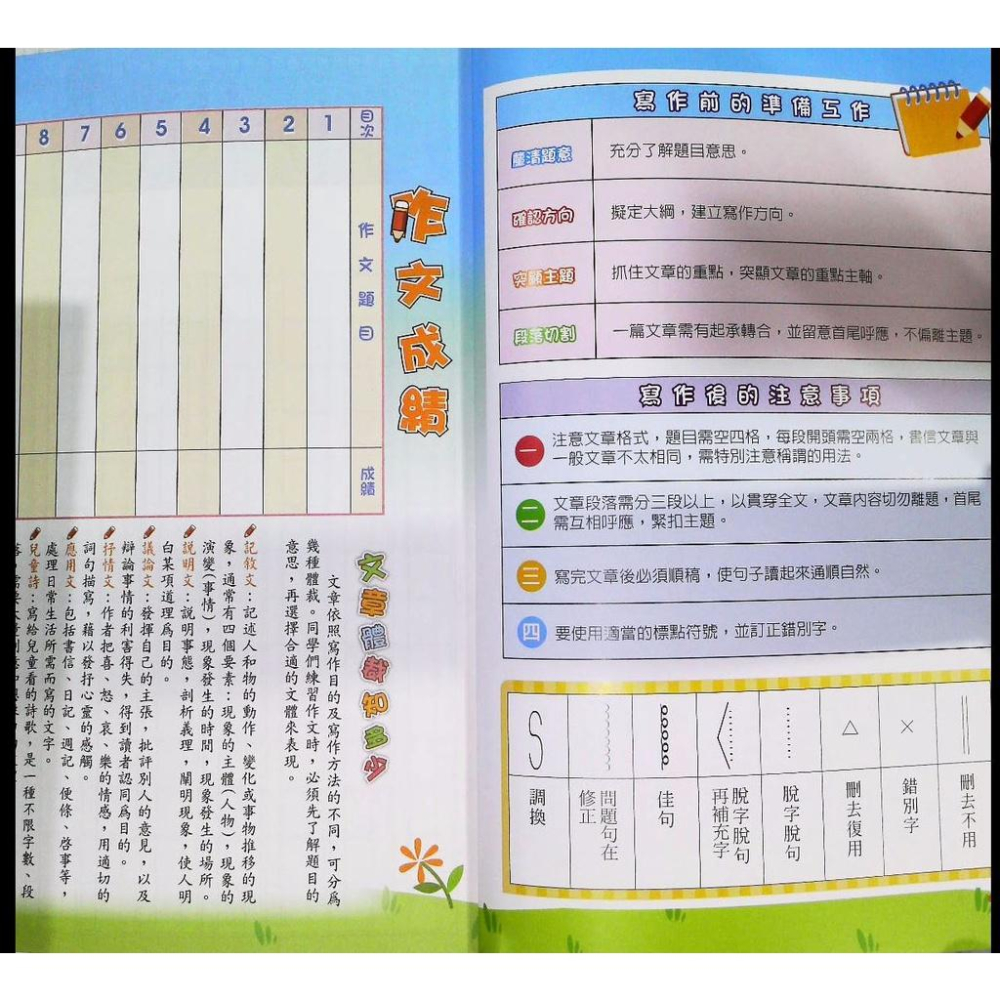 寫作前的準備工作
釐清題意
充分了解題目意思。
確認方向
擬定大綱，建立寫作方向。
突顯主題
抓住文章的重點，突顯文章的重點主軸。
段落切割
一篇文章需有起承轉合，並留意首尾呼應，不偏離主題。
寫作後的注意事項
一 注意文章格式，題目需空四格，每段開頭需空兩格，書信文章與
一般文章不太相同，需特別注意稱謂的用法。
二 文章段落需分三段以上，以貫穿全文，文章內容切勿離題，首尾
需互相呼應，緊扣主題。
三 寫完文章後必須順稿，使句子讀起來通順自然。
四 要使用適當的標點符號，並訂正錯別字。
刪去不用
錯別字
刪去復用
脫字脫句
脫字脫句
再補充字
佳句
問題句在
修正
調換
作文成績
目次
作文題目
成績
1
2
3
4
5
6
7
8
文章體裁知多少
文章依照寫作目的及寫作方法的不同，可分為
幾種體裁。同學們練習作文時，必須先了解題目的
意思，再選擇合適的文體來表現。
記敘文：記述人和物的動作、變化或事物推移的現
象，通常有四個要素：現象的主體（人物），現象的
演變（事情），現象發生的時間，現象發生的場所。
說明文：說明事態，剖析義理，闡明現象，使人明
白某項道理為目的。
議論文：發揮自己的主張，批評別人的意見，以及
辯論事情的利害得失，得到讀者認同為目的。
抒情文：作者把喜、怒、哀、樂的情感，用適切的
詞句描寫，藉以發抒心靈的感觸。
應用文：包括書信、日記、週記、便條、啓事等，
處理日常生活所需而寫的文字。
兒童詩：寫給兒童看的詩歌，是一種不限字數、段